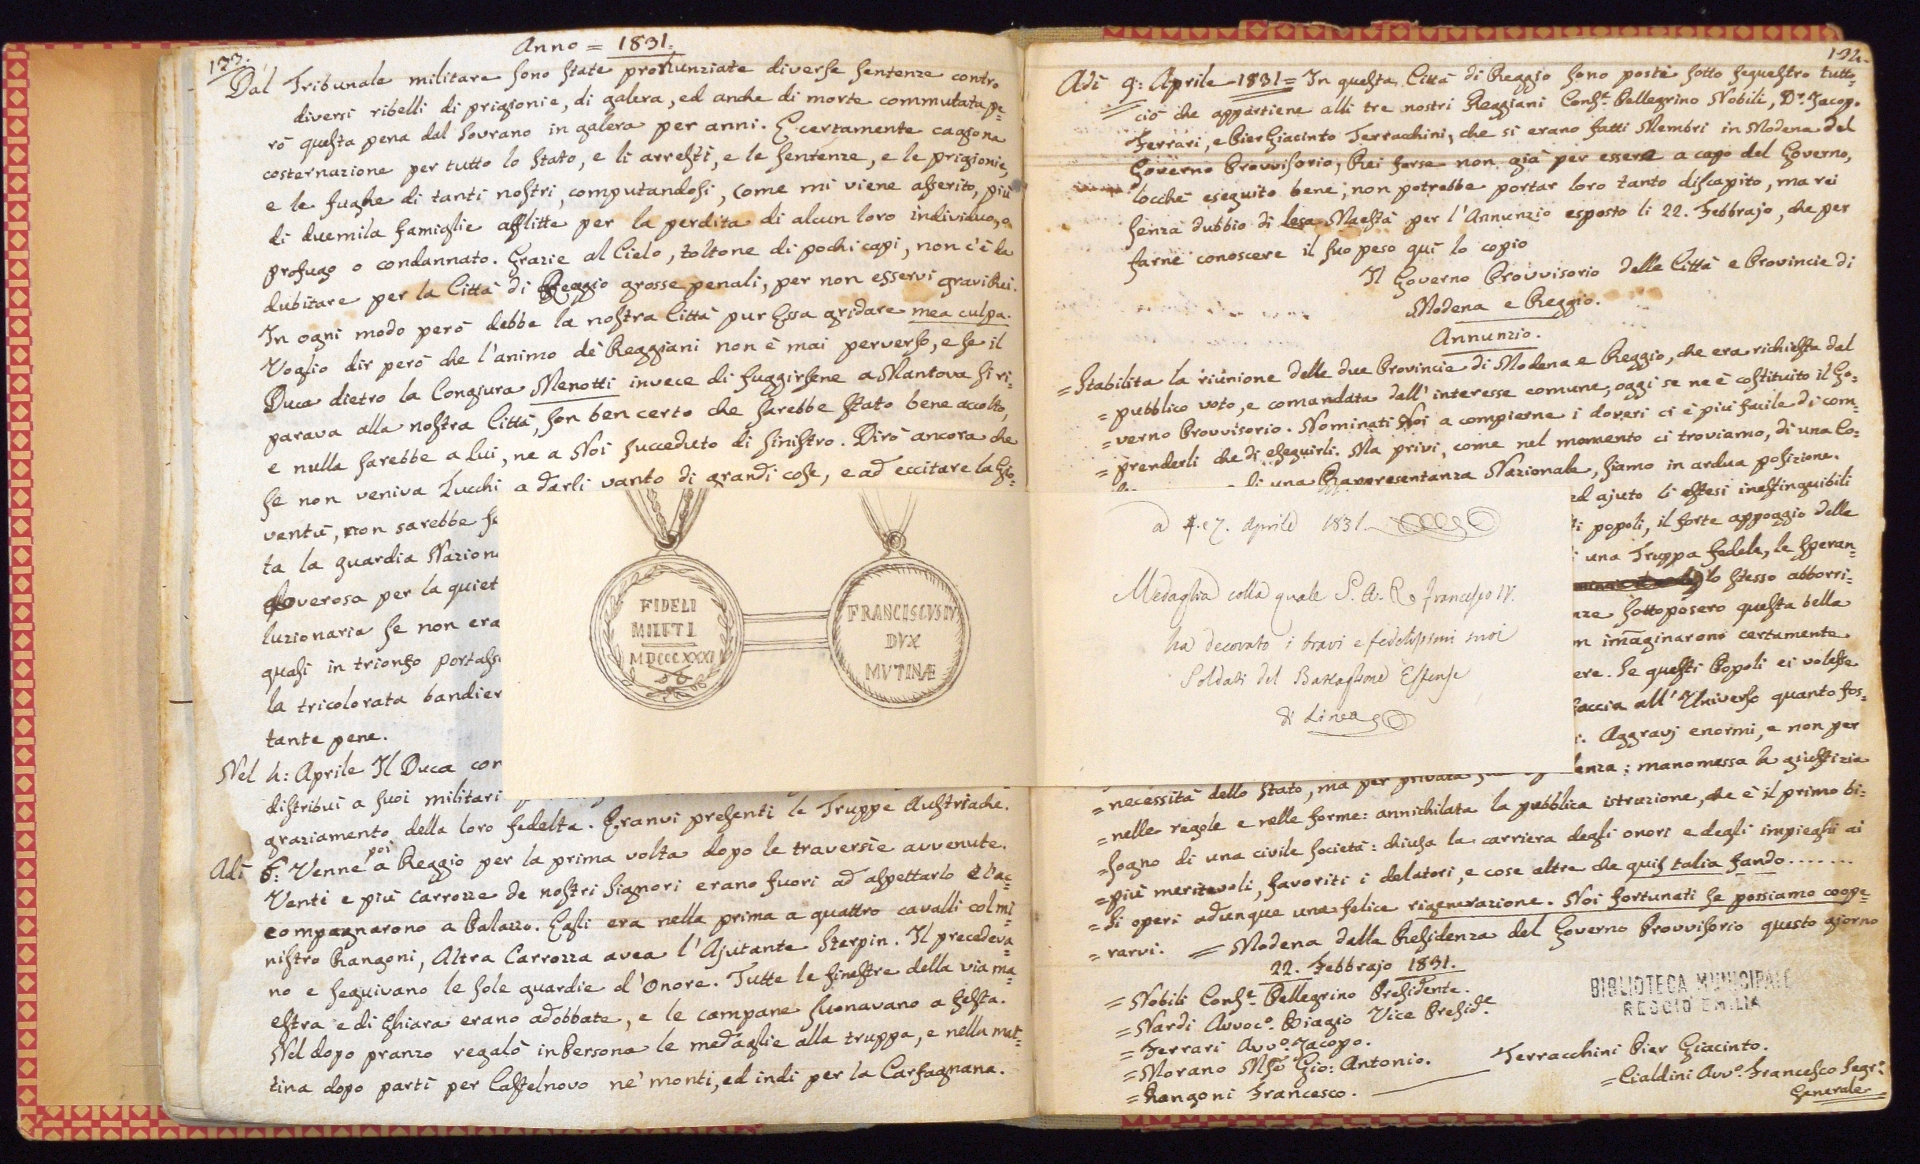 Anno = 1831.
133.
Dal Tribunale militare sono state pronunziate diverse sentenze contro
diversi ribelli di prigionie, di galera, ed anche di morte commutata pe-
rò questa pena dal Sovrano in galera per anni. E certamente cagiona
costernazione per tutto lo stato, e li arresti, e le sentenze, e le prigionie,
e le fughe di tanti nostri, computandosi, come mi viene asserito, più
di duemila famiglie afflitte per la perdita di alcun loro individuo, o
profugo o condannato. Grazie al Cielo, toltone di pochi capi, non c'è da
dubitare per la Città di Reggio grosse penali, per non esservi gravi Rei.
In ogni modo però debbe la nostra Città pur Essa gridare mea culpa.
Voglio dir però che l'animo de' Reggiani non è mai perverso, e se il
Duca dietro la Congiura Menotti invece di fuggirsene a Mantova si ri-
parava alla nostra Città, son ben certo che sarebbe stato bene accolto,
e nulla sarebbe a Lui, ne a Noi succeduto di sinistro. Dirò ancora che
se non veniva Zucchi a darli vanto di grandi cose, e ad eccitare la Gio-
ventù, non sarebbe
ta la guardia Nazion
overosa per la quiet
luzionaria se non era
quasi in trionfo
la tricolorata bandier
tante pene.
Nel 4: Aprile Il Duca con
distribuì a suoi militari
graziamento della loro fedeltà. Eranvi presenti le Truppe Austriache.
Adì 6: Venne poi a Reggio per la prima volta dopo le traversie avvenute.
Venti e più carrozze de nostri Signori erano fuori ad aspettarlo e l'ac-
compagnarono a Palazzo. Egli era nella prima a quattro cavalli col mi-
nistro Rangoni, Altra Carrozza avea l'Ajutante Sterpin. Il precedeva-
no e seguivano le sole guardie d'onore. Tutte le finestre della via ma-
estra e di Ghiara erano adobbate, e le campane suonavano a festa.
Nel dopo pranzo regalò in Persona le medaglie alla truppa, e nella mat-
tina dopo partì per Castelnovo ne' monti, ed indi per la Garfagnana.
FIDELI
MILITI
MDCCCXXXI
FRANCISCVS IV
DVX
MVTINÆ
a 4. e 7. Aprile 1831.
Medaglia colla quale S. A. R. Francesco IV.
ha decorato i bravi e fedelissimi suoi
Soldati del Battaglione Estense
di Linea
134.
Adì 9: Aprile 1831 = In questa Città di Reggio sono posti sotto sequestro tutto-
ciò che appartiene alli tre nostri Reggiani Cons.r Pellegrino Nobili, D.r Jacopo
Ferrari, e Pier Giacinto Terracchini, che si erano fatti Membri in Modena del
Governo Provvisorio, Rei forse non già per essere a capo del Governo,
locchè eseguito bene, non potrebbe portar loro tanto discapito, ma rei
senza dubbio di lesa Maestà per l'Annunzio esposto li 22. Febbrajo, che per
farne conoscere il suo peso quì lo copio
Il Governo Provvisorio delle Città e Provincie di
Modena e Reggio.
Annunzio.
= Stabilita la riunione delle due Provincie di Modena e Reggio, che era richiesta dal
= pubblico voto, e comandata dall'interesse comune, oggi se ne è costituito il Go-
= verno Provvisorio. Nominati Noi a compierne i doveri ci è più facile di com-
= prenderli che di eseguirli. Ma privi, come nel momento ci troviamo, di una Co-
di una Rappresentanza Nazionale, siamo in ardua posizione.
ed ajuto li estesi inestinguibili
ti popoli, il forte appoggio delle
i una Truppa fedele, le speran-
lo stesso abborri-
nze sottoposero questa bella
n imaginarono certamente
ere. Se questi Popoli ei volesse
faccia all'Universo quanto fos-
i. Aggravj enormi, e non per
= necessità dello stato, ma per privata enza; manomessa la giustizia
= nelle regole e nelle forme: annichilata la pubblica istruzione, che è il primo bi-
= sogno di una civile società: chiusa la carriera degli onori e degli impieghi ai
= più meritevoli, favoriti i delatori, e cose altre che quis talia fando.......
= Si operi adunque una felice rigenerazione. Noi fortunati se possiamo coope-
= rarvi. = Modena dalla Residenza del Governo Provvisorio questo giorno
22. Febbrajo 1831.
= Nobili Cons.r Pellegrino Presidente.
= Nardi Avvoc.o Biagio Vice Presid.e
= Ferrari Avv.o Jacopo.
= Morano M.se Gio: Antonio.
Terracchini Pier Giacinto.
= Rangoni Francesco.
= Cialdini Avv.o Francesco Segr.o
Generale
BIBLIOTECA MUNICIPALE
REGGIO EMILIA